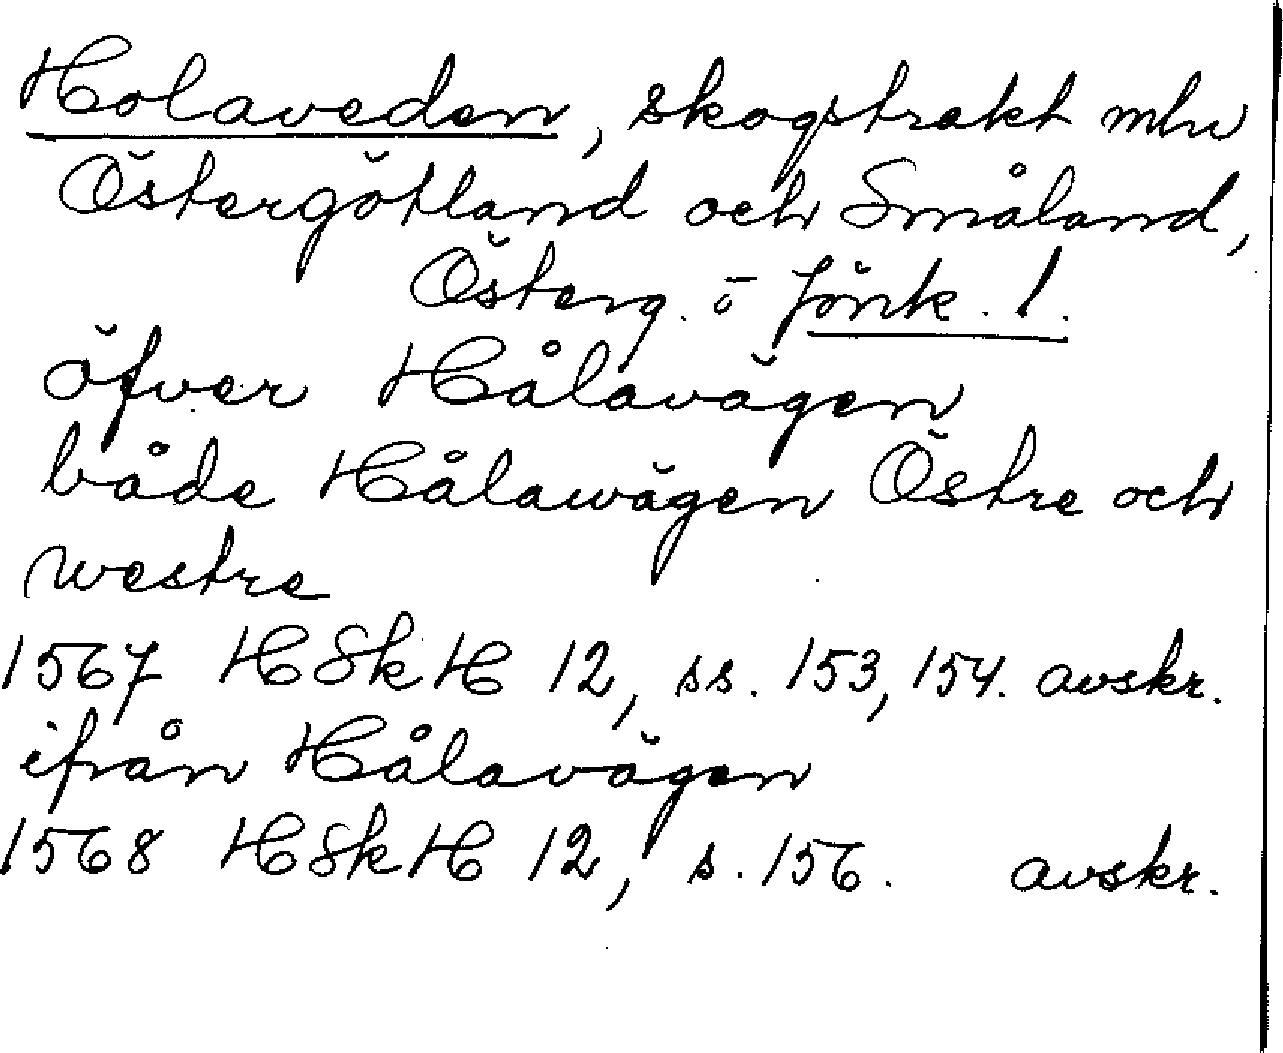 Holaveden, skogstrakt mlu
Östergötland och Småland,
Österg. o Jönk. l.
öfver Hålavägen
både Hålawägen Östre och
westre
1567 HSkH 12, ss. 153, 154. avskr.
ifrån Hålavägen
1568 HSkH 12, s. 156. avskr.